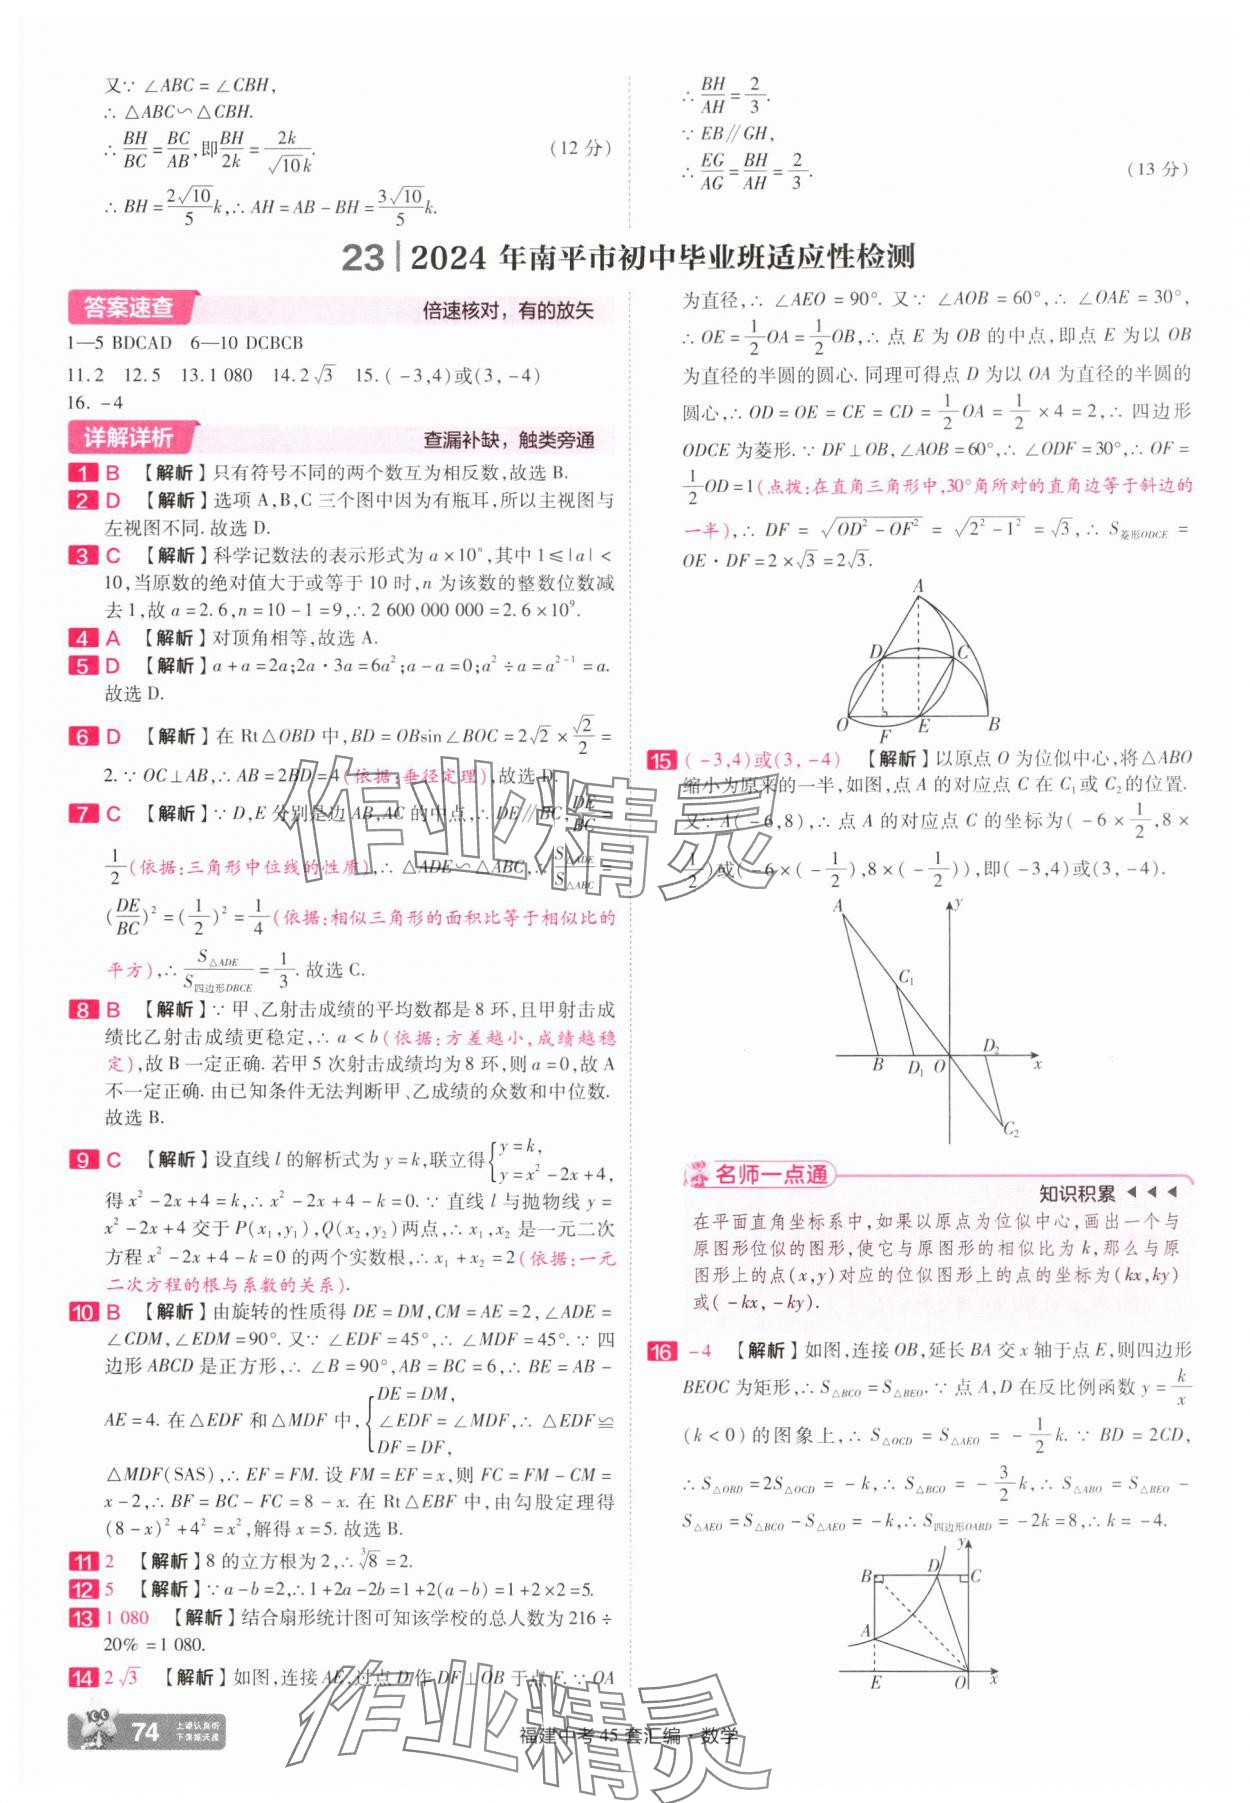 又∵ ∠ABC = ∠CBH,
∴ △ABC∽△CBH.
∴ BH/BC = BC/AB, 即 BH/2k = 2k/(√10 k). (12 分)
∴ BH = (2√10/5)k, ∴ AH = AB − BH = (3√10/5)k.
∴ BH/AH = 2/3.
∵ EB∥GH,
∴ EG/AG = BH/AH = 2/3. (13 分)
23 | 2024 年南平市初中毕业班适应性检测
答案速查 倍速核对，有的放矢
1—5 BDCAD 6—10 DCBCB
11.2 12.5 13.1 080 14.2√3 15.(−3,4)或(3,−4)
16.−4
详解详析 查漏补缺，触类旁通
1 B 【解析】只有符号不同的两个数互为相反数,故选 B.
2 D 【解析】选项 A,B,C 三个图中因为有瓶耳,所以主视图与
左视图不同.故选 D.
3 C 【解析】科学记数法的表示形式为 a×10ⁿ,其中 1≤|a|<
10,当原数的绝对值大于或等于 10 时,n 为该数的整数位数减
去 1,故 a=2.6,n=10−1=9,∴ 2 600 000 000=2.6×10⁹.
4 A 【解析】对顶角相等,故选 A.
5 D 【解析】a+a=2a;2a·3a=6a²;a−a=0;a²÷a=a²⁻¹=a.
故选 D.
6 D 【解析】在 Rt△OBD 中,BD=OBsin∠BOC=2√2×√2/2=
2.∵ OC⊥AB,∴ AB=2BD=4(依据:垂径定理),故选 D.
7 C 【解析】∵ D,E 分别是边 AB,AC 的中点,∴ DE∥BC,DE/BC=
1/2(依据:三角形中位线的性质),∴ △ADE∽△ABC,∴ S△ADE/S△ABC=
(DE/BC)²=(1/2)²=1/4(依据:相似三角形的面积比等于相似比的
平方),∴ S△ADE/S四边形DBCE=1/3.故选 C.
8 B 【解析】∵ 甲、乙射击成绩的平均数都是 8 环,且甲射击成
绩比乙射击成绩更稳定,∴ a<b(依据:方差越小,成绩越稳
定),故 B 一定正确.若甲 5 次射击成绩均为 8 环,则 a=0,故 A
不一定正确.由已知条件无法判断甲、乙成绩的众数和中位数.
故选 B.
9 C 【解析】设直线 l 的解析式为 y=k,联立得{y=k, y=x²−2x+4,
得 x²−2x+4=k,∴ x²−2x+4−k=0.∵ 直线 l 与抛物线 y=
x²−2x+4 交于 P(x₁,y₁),Q(x₂,y₂)两点,∴ x₁,x₂ 是一元二次
方程 x²−2x+4−k=0 的两个实数根,∴ x₁+x₂=2(依据:一元
二次方程的根与系数的关系).
10 B 【解析】由旋转的性质得 DE=DM,CM=AE=2,∠ADE=
∠CDM,∠EDM=90°.又∵ ∠EDF=45°,∴ ∠MDF=45°.∵ 四
边形 ABCD 是正方形,∴ ∠B=90°,AB=BC=6,∴ BE=AB−
AE=4.在△EDF 和△MDF 中,{DE=DM, ∠EDF=∠MDF, DF=DF, ∴ △EDF≌
△MDF(SAS),∴ EF=FM.设 FM=EF=x,则 FC=FM−CM=
x−2,∴ BF=BC−FC=8−x.在 Rt△EBF 中,由勾股定理得
(8−x)²+4²=x²,解得 x=5.故选 B.
11 2 【解析】8 的立方根为 2,∴ ³√8=2.
12 5 【解析】∵a−b=2,∴1+2a−2b=1+2(a−b)=1+2×2=5.
13 1 080 【解析】结合扇形统计图可知该学校的总人数为 216÷
20%=1 080.
14 2√3 【解析】如图,连接 AE,过点 D 作 DF⊥OB 于点 F.∵ OA
为直径,∴ ∠AEO=90°.又∵ ∠AOB=60°,∴ ∠OAE=30°,
∴ OE=1/2OA=1/2OB,∴ 点 E 为 OB 的中点,即点 E 为以 OB
为直径的半圆的圆心.同理可得点 D 为以 OA 为直径的半圆的
圆心,∴ OD=OE=CE=CD=1/2OA=1/2×4=2,∴ 四边形
ODCE 为菱形.∵ DF⊥OB,∠AOB=60°,∴ ∠ODF=30°,∴ OF=
1/2OD=1(点拨:在直角三角形中,30°角所对的直角边等于斜边的
一半),∴ DF=√(OD²−OF²)=√(2²−1²)=√3,∴ S菱形ODCE=
OE·DF=2×√3=2√3.
A
D C
O F E B
15 (−3,4)或(3,−4) 【解析】以原点 O 为位似中心,将△ABO
缩小为原来的一半,如图,点 A 的对应点 C 在 C₁或 C₂的位置.
又∵ A(−6,8),∴ 点 A 的对应点 C 的坐标为(−6×1/2,8×
1/2)或(−6×(−1/2),8×(−1/2)),即(−3,4)或(3,−4).
A y
C₁
B D₁ O D₂ x
C₂
名师一点通
知识积累
在平面直角坐标系中,如果以原点为位似中心,画出一个与
原图形位似的图形,使它与原图形的相似比为 k,那么与原
图形上的点(x,y)对应的位似图形上的点的坐标为(kx,ky)
或(−kx,−ky).
16 −4 【解析】如图,连接 OB,延长 BA 交 x 轴于点 E,则四边形
BEOC 为矩形,∴ S△BCO=S△BEO.∵ 点 A,D 在反比例函数 y=k/x
(k<0)的图象上,∴ S△OCD=S△AEO=−1/2k.∵ BD=2CD,
∴ S△OBD=2S△OCD=−k,∴ S△BCO=−3/2k,∴ S△ABO=S△BEO−
S△AEO=S△BCO−S△AEO=−k,∴ S四边形OABD=−2k=8,∴ k=−4.
y
B D C
A
E O x
74 上课认真听
下课练天成
福建中考 45 套汇编·数学
作业精灵
作业精灵